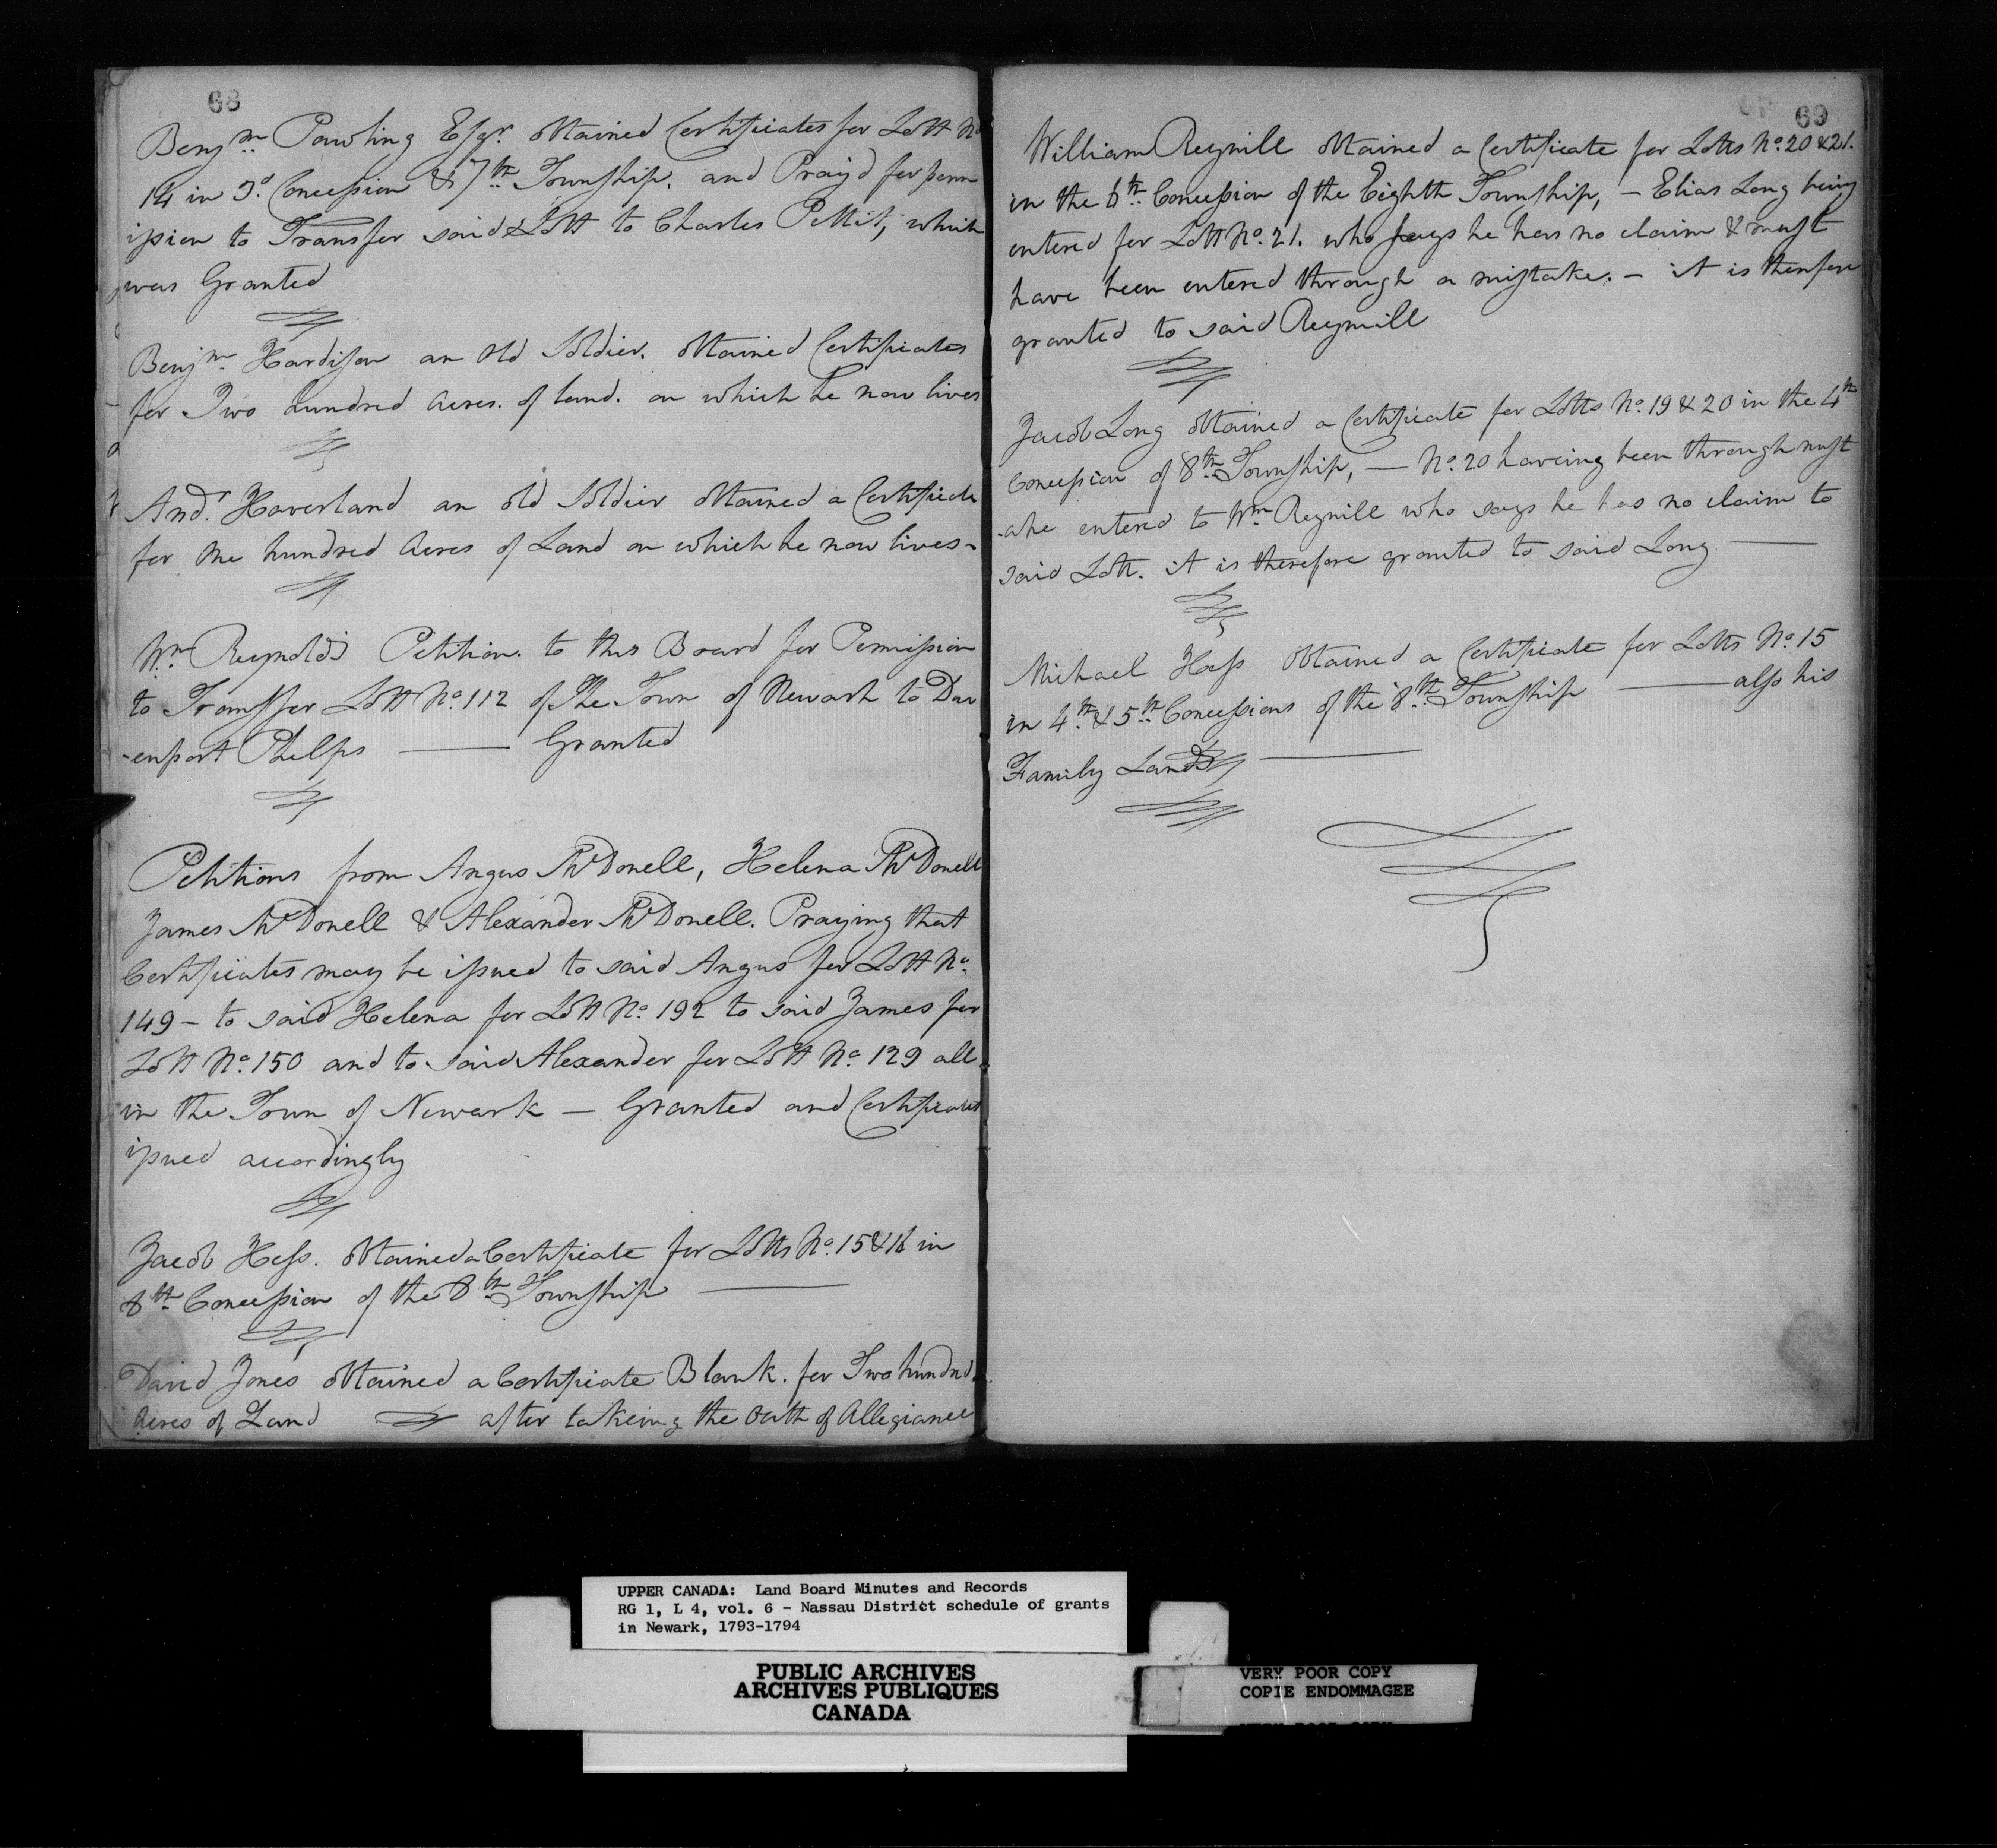 68
Benjm. Pawling Esqr. obtained Certificates for Lott No
14 in 3d. Concession & 7th. Township. and Pray'd for perm
ission to Transfer said Lott to Charles Pettit, which
was Granted
Benjm. Hardison an Old Soldier. obtained Certificates
for Two hundred Acres. of land. on which he now lives
Andr. Haverland an old Soldier obtained a Certificate
for one hundred Acres of Land on which he now lives -
Wm. Reynolds Petition. to this Board for Permission
to Transfer Lott No. 112 of The Town of Newark to Dav
-enport Phelps — Granted
Petitions from Angus McDonell, Helena McDonell
James McDonell & Alexander McDonell. Praying that
Certificates may be issued to said Angus for Lott No.
149 - to said Helena for Lott No. 192 to said James for
Lott No. 150 and to said Alexander for Lott No. 129 all
in the Town of Newark — Granted and Certificates
issued accordingly
Jacob Hess. obtained a Certificate for Lotts No. 15 & 16 in
8th. Concession of the 8th. Township —
David Jones obtained a Certificate Blank. for Two hundred
Acres of Land after takeing the Oath of Allegiance
69
William Reynill obtained a Certificate for Lotts No. 20 & 21.
in the 6th. Concession of the Eighth Township, - Elias Long being
entered for Lott No. 21. who says he has no claim & must
have been entered through a mistake. - it is therefore
granted to said Reynill
Jacob Long obtained a Certificate for Lotts No. 19 & 20 in the 4th
Concession of 8th. Township, — No. 20 haveing been through mist
-ake entered to Wm. Reynill who says he has no claim to
said Lott. it is therefore granted to said Long —
Michael Hess Obtained a Certificate for Lotts No. 15
in 4th. & 5th. Concessions of the 8th. Township — also his
Family Lands —
UPPER CANADA: Land Board Minutes and Records
RG 1, L 4, vol. 6 - Nassau District schedule of grants
in Newark, 1793-1794
PUBLIC ARCHIVES
ARCHIVES PUBLIQUES
CANADA
VERY POOR COPY
COPIE ENDOMMAGEE